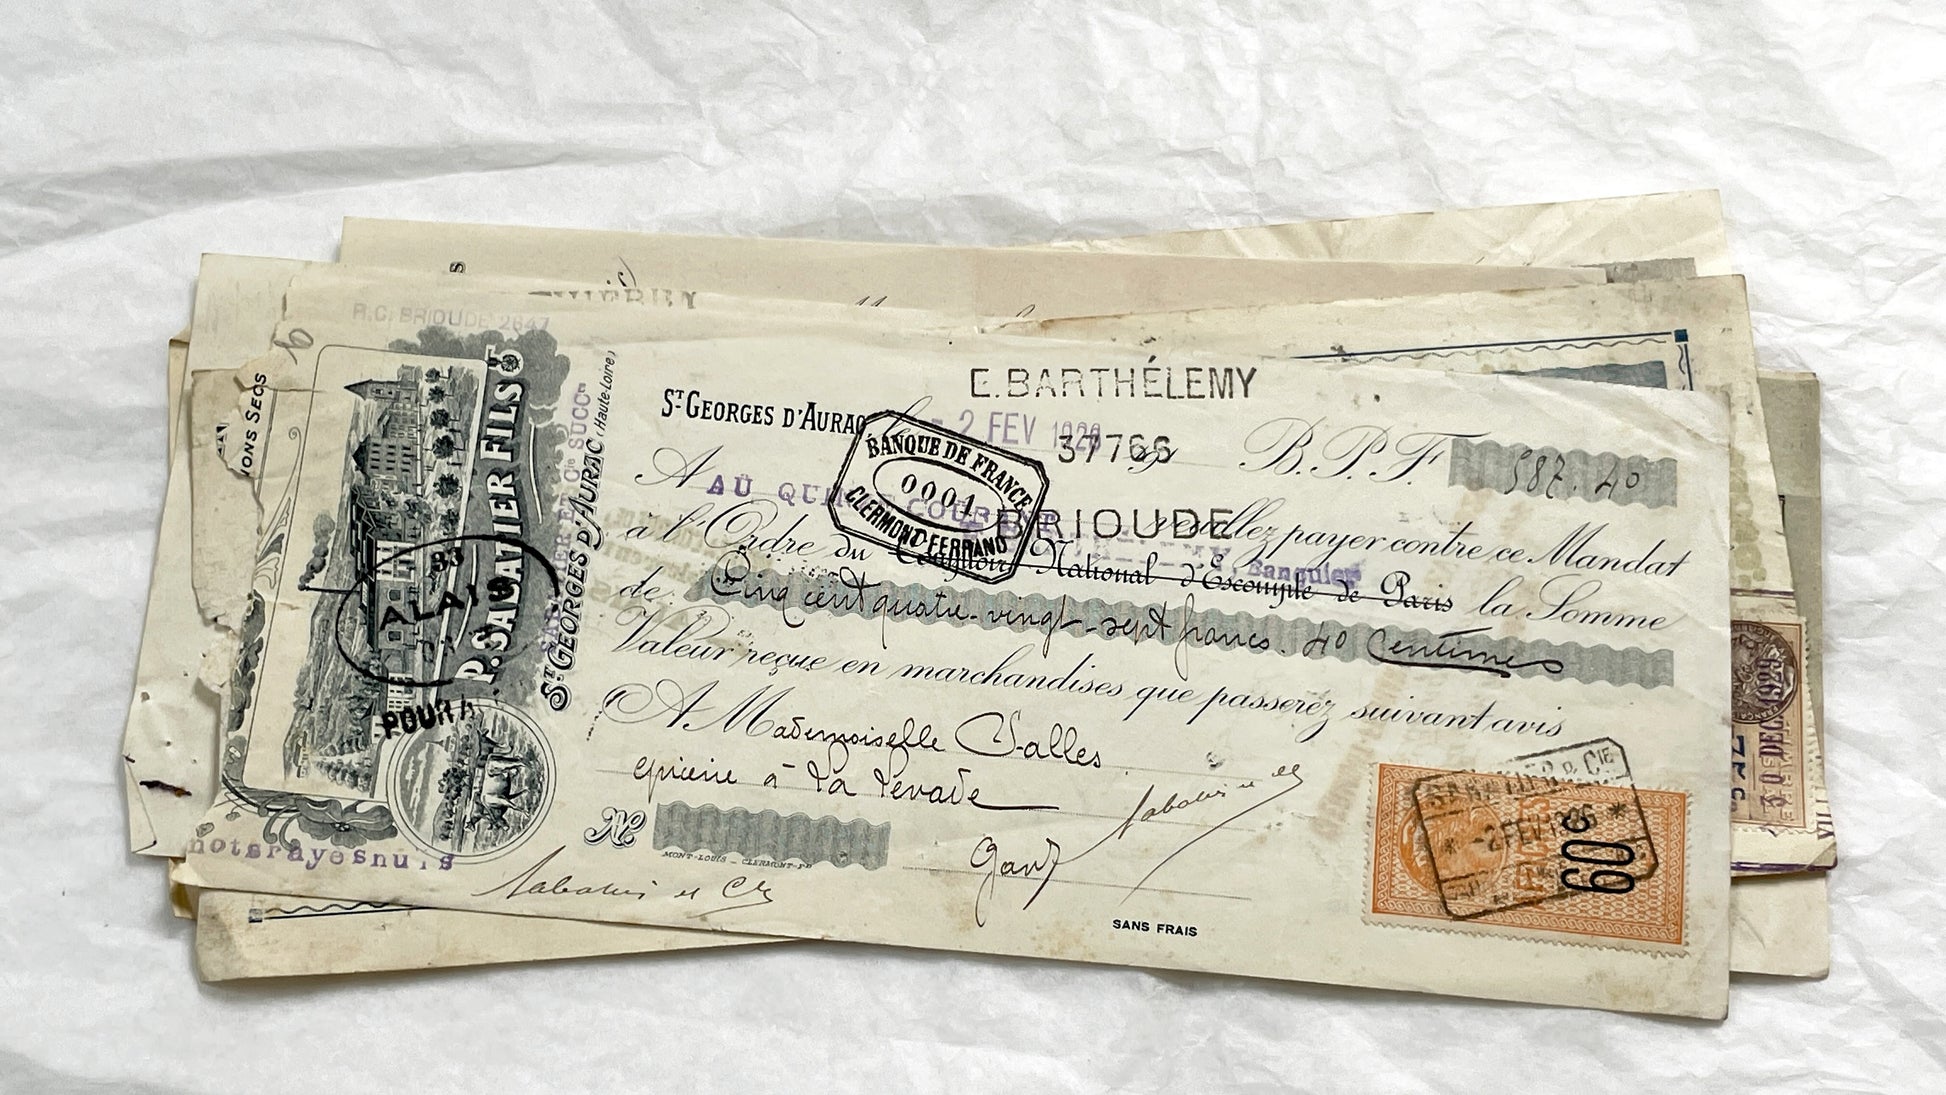 R.C. BRIOUDE 2647
IONS SECS
P. SABATIER FILS
ST GEORGES D'AURAC (Haute-Loire)
SUCCRS
33
ALAIS
POUR A
notsrayesnuls
E. BARTHÉLEMY
ST GEORGES D'AURAC, le 2 FEV
37766
B.P.F. 587.40
BANQUE DE FRANCE
0001
CLERMONT-FERRAND
A AU
BRIOUDE
veuillez payer contre ce Mandat
à l'Ordre du Comptoir National d'Escompte de Paris la Somme
Banquiers
de Cinq cent quatre-vingt-sept francs. 40 Centimes
Valeur reçue en marchandises que passerez suivant avis
A Mademoiselle Valles
epicerie à La Levade
Gard
No
MONT-LOUIS - CLERMONT-FD
Sabatier et Cie
Sabatier et Cie
SANS FRAIS
SABATIER & CIE
* -2 FEV *
FRANCS
60c
30 DEC 1929